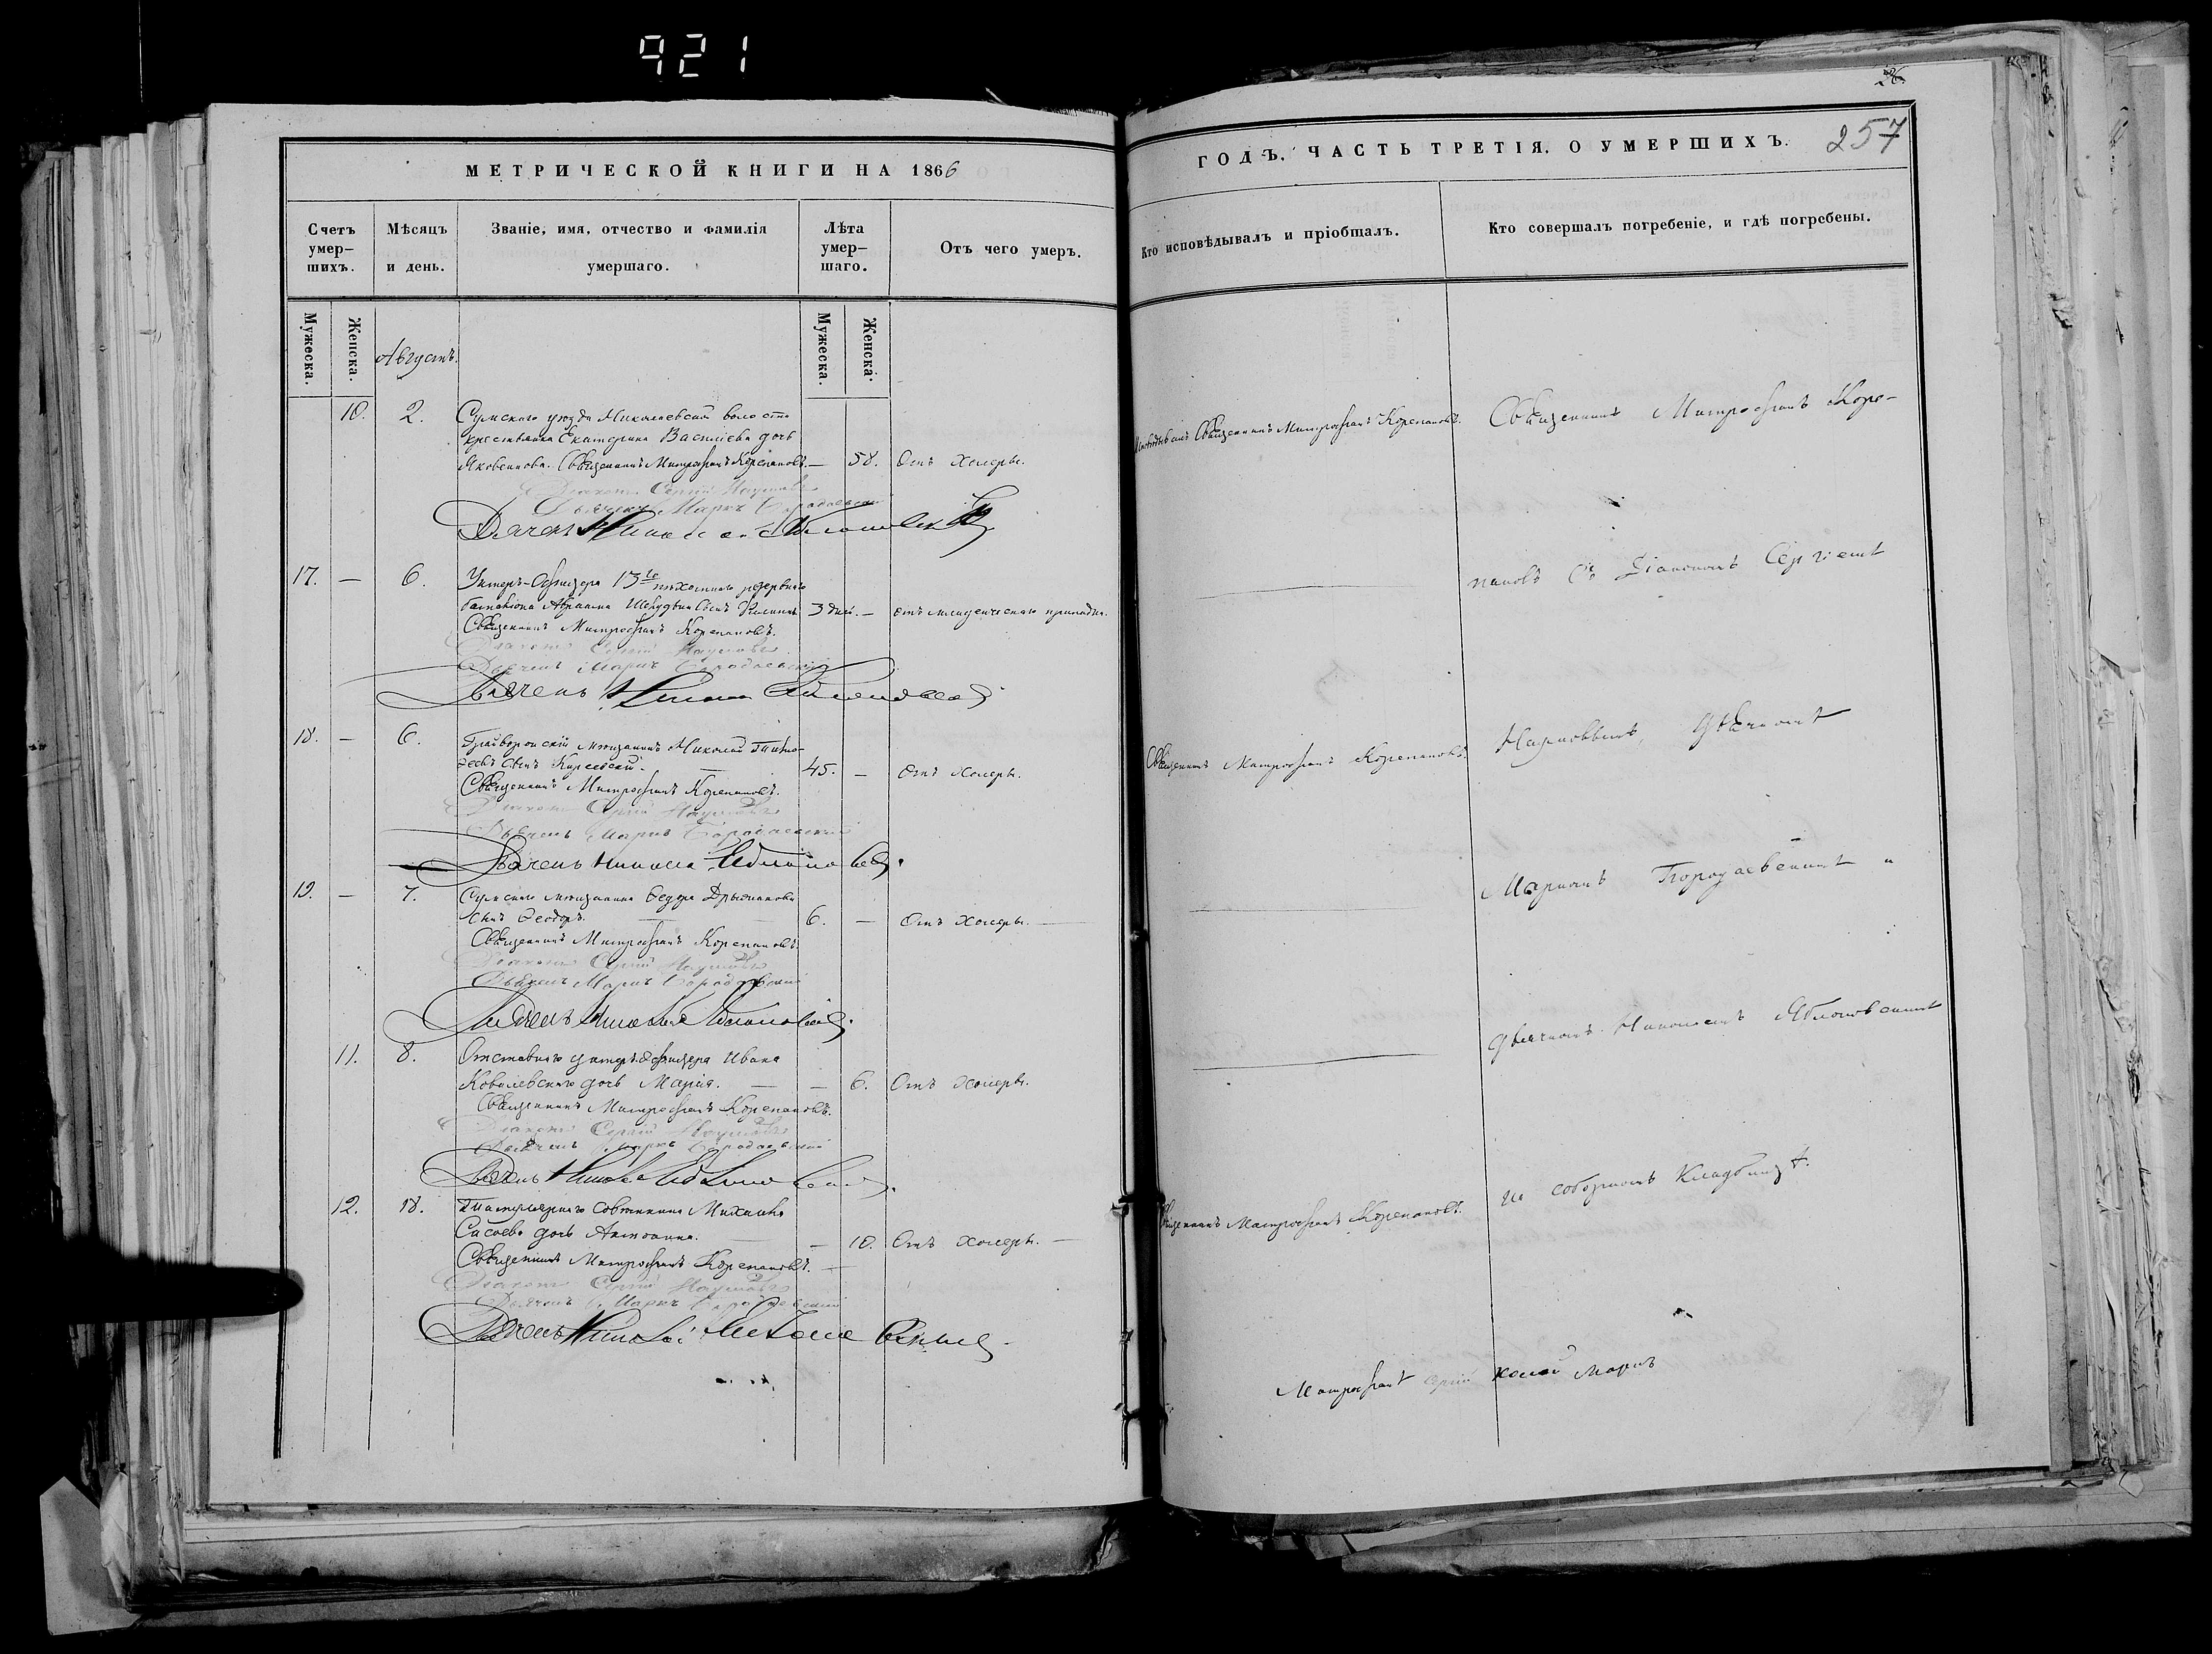 921
МЕТРИЧЕСКОЙ КНИГИ НА 1866
Счетъ умер-шихъ.
Мѣсяцъ и день.
Званіе, имя, отчество и фамилія умершаго.
Лѣта умер-шаго.
Отъ чего умеръ.
Мужеска.
Женска.
Августъ.
Мужеска.
Женска.
10. 2. Сумскаго уѣзда Николаевской волости
крестьянка Екатерина Васильева дочь
Яковенкова. Священникъ Митрофанъ Корепановъ. — 58. Отъ холеры.
Діаконъ Сергій Наумовъ
Дьячекъ Маркъ Бородаевскій
Дьячекъ Николай
17. — 6. Унтеръ-Офицера 13го пѣхотнаго резервнаго
баталіона Авраама сынъ 3 дней. — отъ младенческаго припадка.
Священникъ Митрофанъ Корепановъ.
Діаконъ Сергій Наумовъ
Дьячекъ Маркъ Бородаевскій
Дьячекъ Николай
18. — 6. Грайворонскій мѣщанинъ Николай Тимо-
сынъ 45. — Отъ холеры.
Священникъ Митрофанъ Корепановъ.
Діаконъ Сергій Наумовъ
Дьячекъ Маркъ Бородаевскій
Дьячекъ Николай
19. — 7. Сумскаго мѣщанина Федора
сынъ Феодоръ. 6. — Отъ холеры.
Священникъ Митрофанъ Корепановъ.
Діаконъ Сергій Наумовъ
Дьячекъ Маркъ Бородаевскій
Дьячекъ Николай
11. 8. Отставнаго унтеръ-офицера Ивана
Ковалевскаго дочь Марія. — — 6. Отъ холеры.
Священникъ Митрофанъ Корепановъ.
Діаконъ Сергій Наумовъ
Дьячекъ Маркъ Бородаевскій
Дьячекъ Николай
12. 18. Титулярнаго совѣтника Михаила
Сасоева дочь Антонина. — 10. Отъ холеры. —
Священникъ Митрофанъ Корепановъ. —
Діаконъ Сергій Наумовъ
Дьячекъ Маркъ Бородаевскій
Дьячекъ Николай
ГОДЪ. ЧАСТЬ ТРЕТІЯ. О УМЕРШИХЪ.
257
Кто исповѣдывалъ и пріобщалъ.
Кто совершалъ погребеніе, и гдѣ погребены.
Исповѣдывалъ Священникъ Митрофанъ Корепановъ.
Священникъ Митрофанъ Коре-
пановъ Съ Діакономъ Сергіемъ
Священникъ Митрофанъ Корепановъ.
Наумовымъ, дьячкомъ
Маркомъ Бородаевскимъ и
дьячкомъ Николаемъ Яблоновскимъ
Священникъ Митрофанъ Корепановъ.
на соборномъ Кладбищѣ.
Митрофанъ Сергій Колай Маркъ